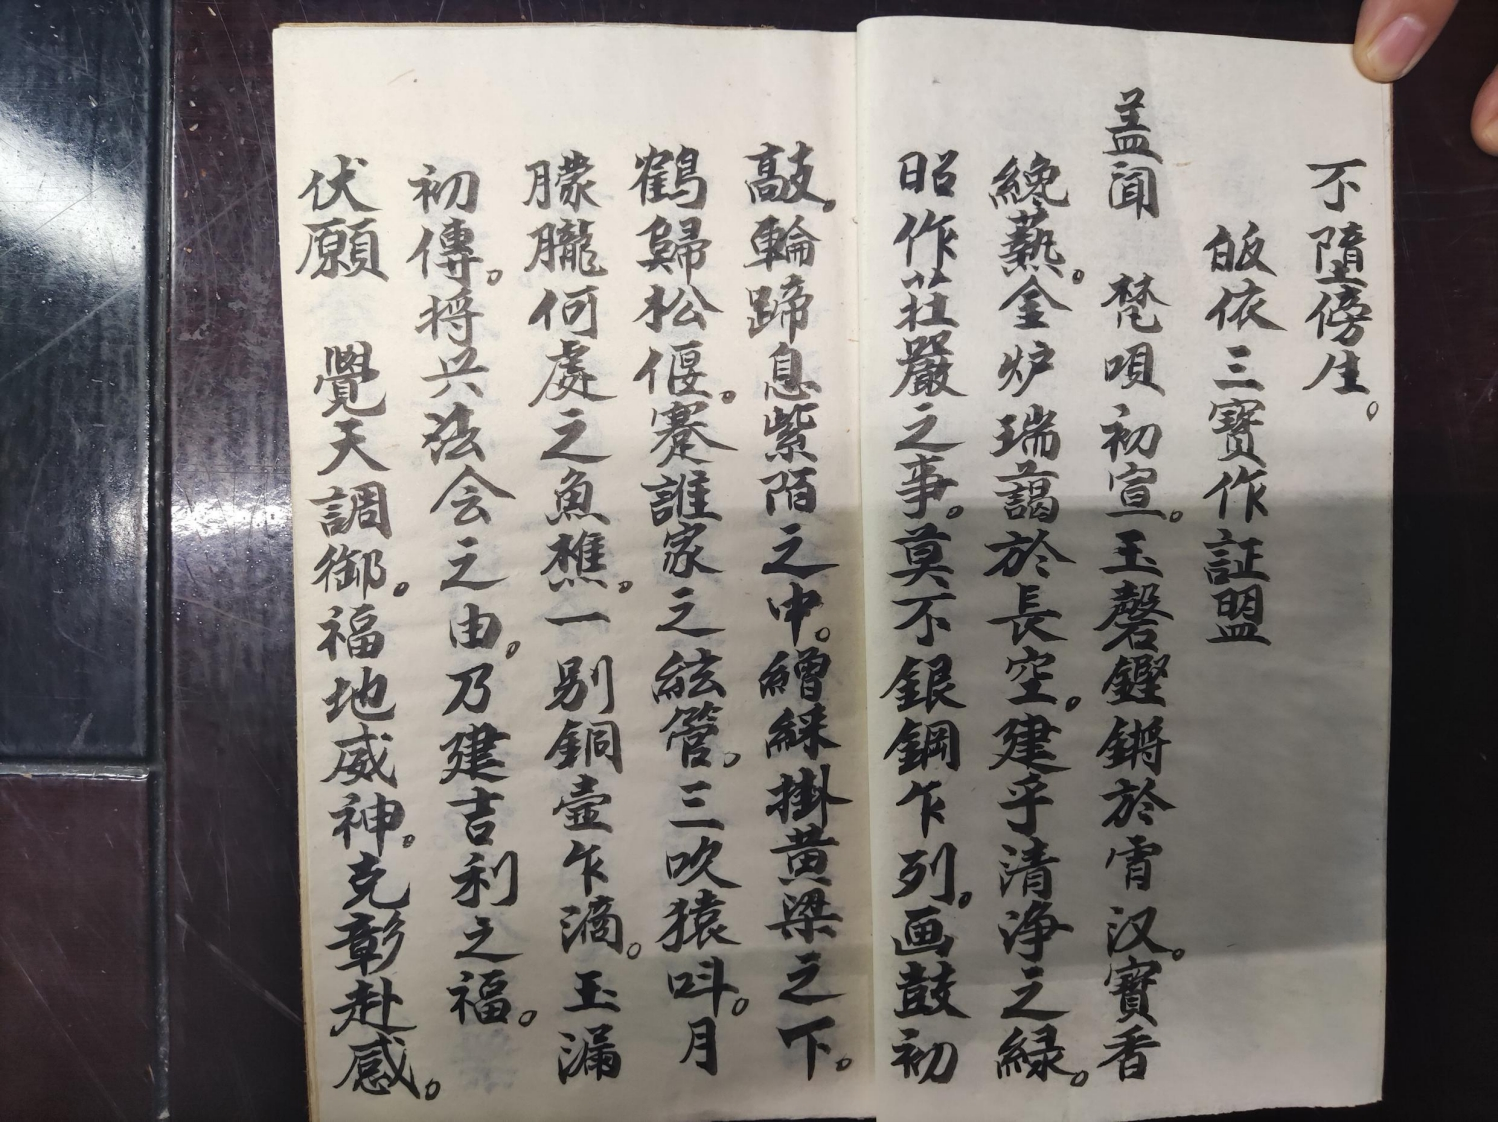 不墮傍生。
皈依三寶作証盟
盖闻　梵唄初宣。玉磬鏗鏘於霄汉。寶香
纔爇。金炉瑞靄於長空。建乎清净之緑。
昭作莊嚴之事。莫不銀鋼乍列。画鼓初
敲。輪蹄息紫陌之中。繒綵掛黄梁之下。
鶴歸松偃。蹇誰家之絃管。三吹猿呌。月
朦朧何處之魚樵。一别銅壺乍滴。玉漏
初傳。将兴法会之由。乃建吉利之福。
伏願　覺天調御。福地威神。克彰赴感。